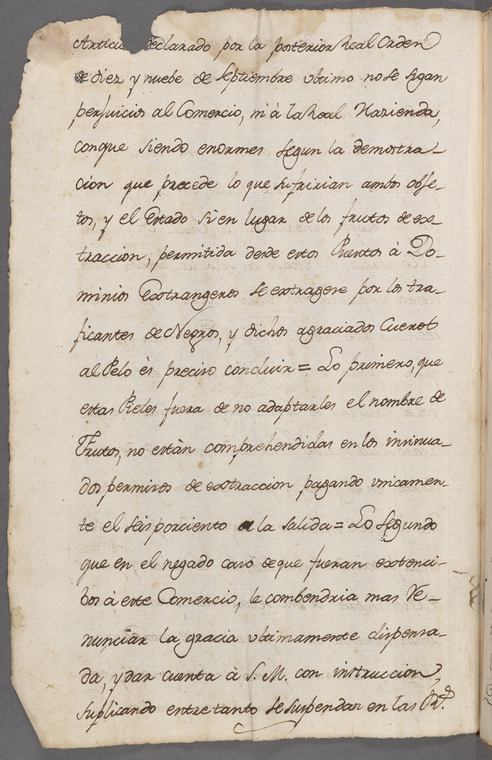 Articulo declarado por la posterior Real Orden
de diez y nuebe de Septiembre ultimo no se sigan
perjuicios al Comercio, ni à la Real Hazienda,
conque siendo enormes segun la demostra-
cion que precede lo que sufririan ambos obje-
tos, y el Estado si en lugar de los frutos de ex-
traccion, permitida desde estos Puertos à Do-
minios Extrangeros se extragese por los tra-
ficantes de Negros, y dichos agraciados Cueros
al Pelo ès preciso concluir = Lo primero, que
estas Pieles fuera de no adaptarles el nombre de
Frutos, no estàn comprehendidas en los insinua-
dos permisos de extraccion pagando unicamen-
te el seis por ciento a la salida = Lo segundo
que en el negado caso de que fueran extenci-
bos à este Comercio, le combendria mas re-
nunciar la gracia ultimamente dispensa-
da, y dar cuenta à S. M. con instruccion,
suplicando entre tanto se suspendan en las